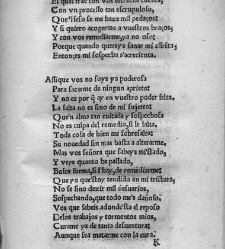 Con vn proceſſo tan eſcrupuloſo,
Que'l ſeſo ſe me haze mil pedaços:
Y ſi quiero acogerme a vueſtros braços,
Y con vos remediarme, ya no oſo:
Porque quando quereys ſanar mi
Entonces mi ſoſpecha s'acreſcienta.
Aſsique vos no ſoys ya poderoſa
Para ſacarme de ningun aprieto:
Y no es por q̃ ay en vueſtro poder falta.
La falta no es ſino de mi ſujeto:
Que'a alma tan cuitada y ſoſpechoſa
No es culpa del remedio, ſi le falta.
Toda coſa de bien me ſobreſalta:
Su nouedad ſin mas baſta a alterarme.
Mas vos ſeñora que ſabeys m'iſtado,
Y veys quanto he paſſado,
Buſca forma, ſi l'hay, de remediarme:
Que yo queſtoy tendido en mi triſtura,
No ſe ſino dezir mil deſuarios,
Soſpechando, que todo me's dañoſo.
Vos que ſabeis adonde ſta el repoſo
Delos trabajos y tormentos mios,
Curame ya de tanta deſuentura:
Aunque ſea matarme con la cura.
K